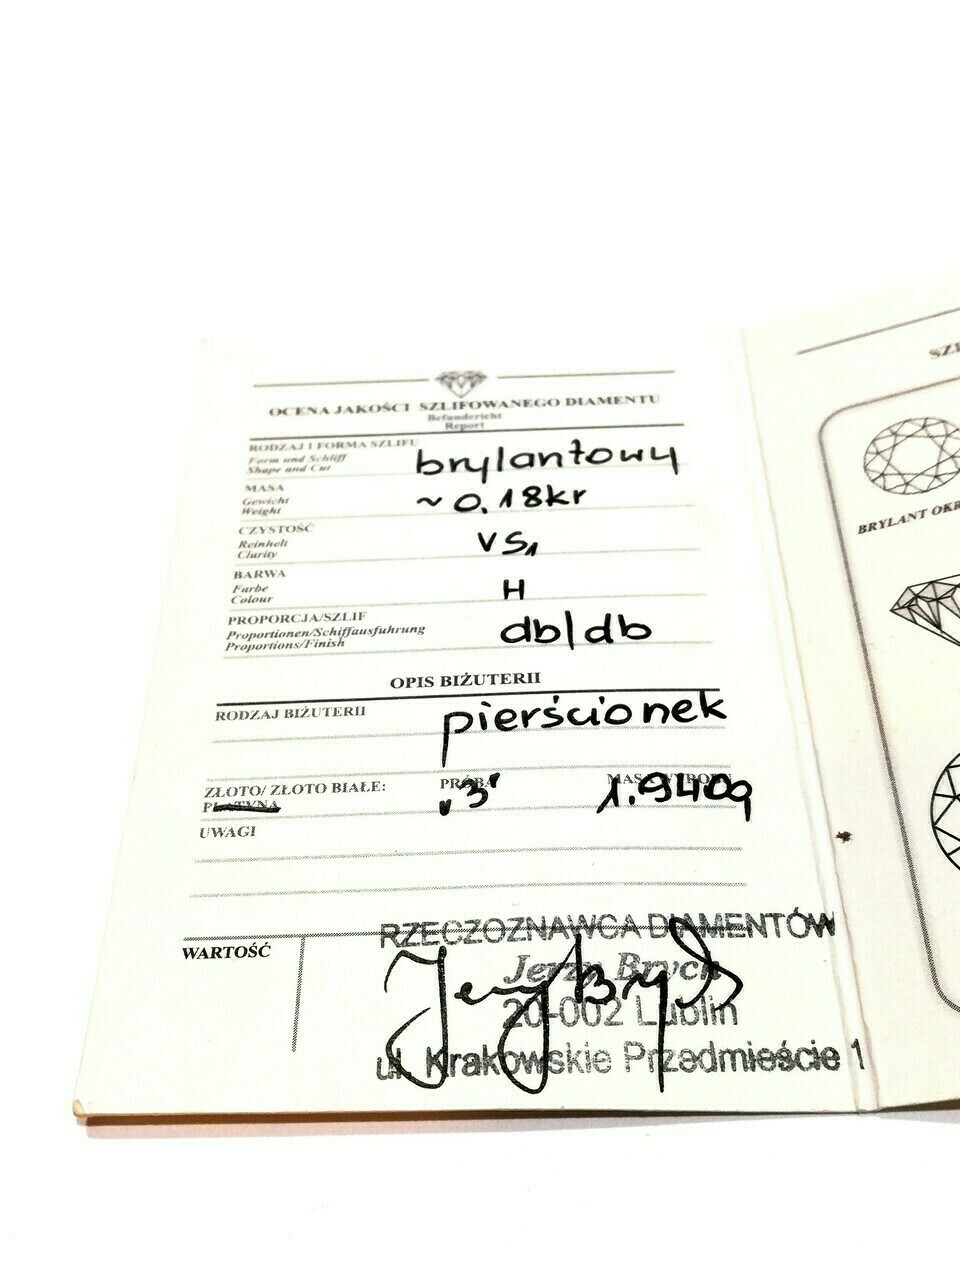 OCENA JAKOŚCI SZLIFOWANEGO DIAMENTU
Befundericht
Report
RODZAJ I FORMA SZLIFU
Form und Schliff
Shape and Cut
brylantowy
MASA
Gewicht
Weight
~0.18kr
CZYSTOŚĆ
Reinheit
Clarity
VS1
BARWA
Farbe
Colour
H
PROPORCJA/SZLIF
Proportionen/Schiffausfuhrung
Proportions/Finish
db/db
OPIS BIŻUTERII
RODZAJ BIŻUTERII
pierścionek
ZŁOTO/ ZŁOTO BIAŁE:
PLATYNA
PRÓBA
„3"
MASA WYROBU
1.940g
UWAGI
WARTOŚĆ
RZECZOZNAWCA DIAMENTÓW
Jerzy Brych
20-002 Lublin
ul. Krakowskie Przedmieście 1
BRYLANT